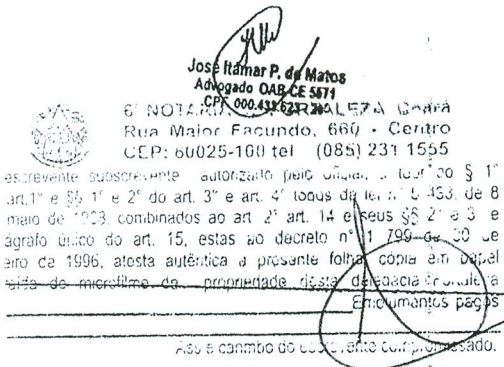 José Itamar P. de Matos
Advogado OAB-CE 5571
CPF 000.433.623
6º NOTARI FORTALEZA Ceará
Rua Maior Facundo, 660 - Centro
CEP: 60025-100 tel (085) 231 1555
escrevente subscrevente autorizado pelo oficial, a teor do § 1º
art.1º e §§ 1º e 2º do art. 3º e art. 4º todos da lei nº 5 433, de 8
maio de combinados ao art 2º art. 14 e seus §§ 2º e 3 e
ágrafo único do art. 15, estas ao decreto nº 1 799 de 30 de
eiro de 1996, atesta autêntica a presente folha, cópia em papel
de microfilme de propriedade desta delegacia
Emolumentos pagos
Ass e carimbo do escrevente compromissado.